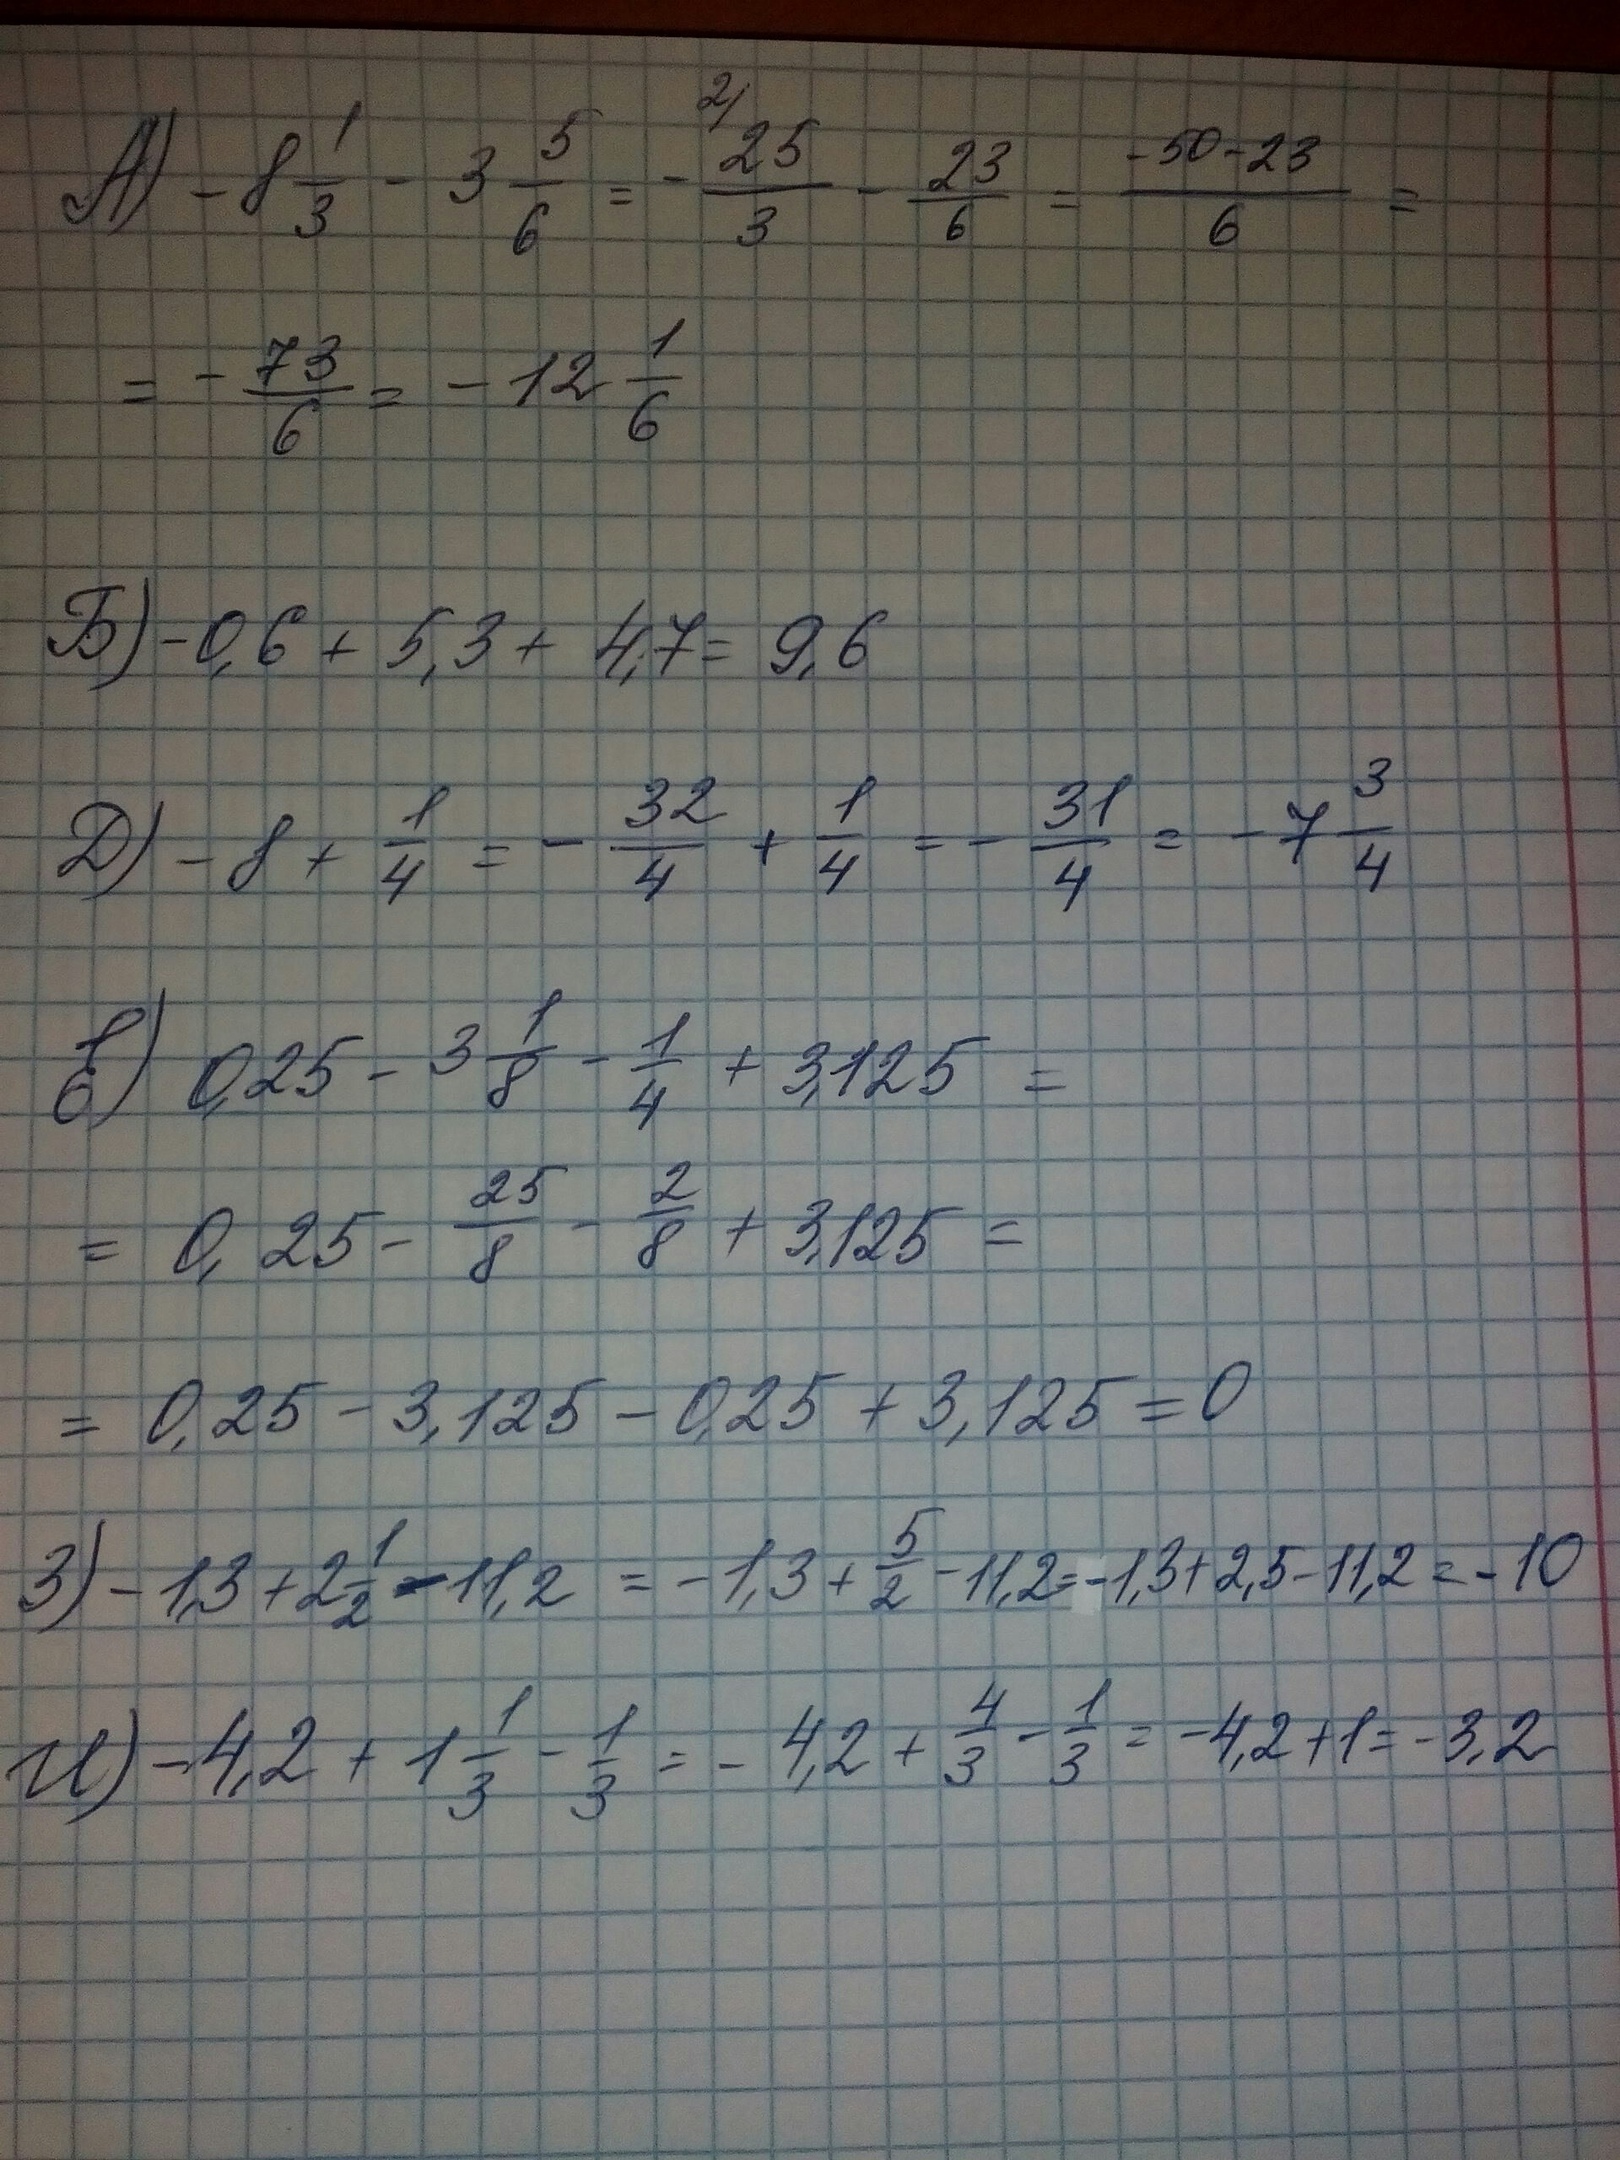 А) -8 1/3 - 3 5/6 = - 25/3 2/ - 23/6 = -50-23/6 =
= - 73/6 = -12 1/6
Б) -0,6 + 5,3 + 4,7 = 9,6
Д) -8 + 1/4 = - 32/4 + 1/4 = - 31/4 = -7 3/4
Е) 0,25 - 3 1/8 - 1/4 + 3,125 =
= 0,25 - 25/8 - 2/8 + 3,125 =
= 0,25 - 3,125 - 0,25 + 3,125 = 0
З) -1,3 + 2 1/2 - 11,2 = -1,3 + 5/2 - 11,2 = -1,3 + 2,5 - 11,2 = -10
И) -4,2 + 1 1/3 - 1/3 = -4,2 + 4/3 - 1/3 = -4,2 + 1 = -3,2